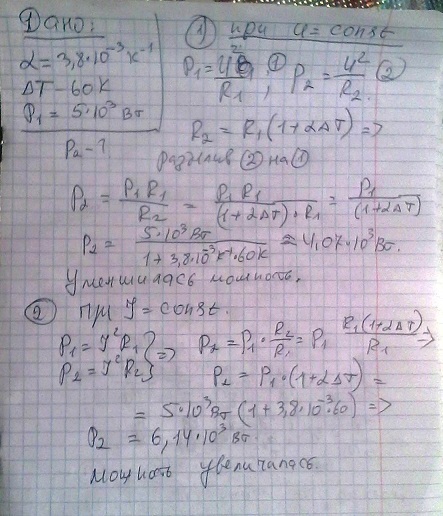 Дано:
α = 3,8·10⁻³ K⁻¹
ΔT - 60K
P₁ = 5·10³ Вт
P₂ - ?
① при U = const
P₁ = U²/R₁ ①; P₂ = U²/R₂. ②
R₂ = R₁(1+αΔT) =>
разделив ② на ①
P₂ = P₁R₁/R₂ = P₁R₁/((1+αΔT)·R₁) = P₁/(1+αΔT)
P₂ = 5·10³ Вт/(1+3,8·10⁻³K⁻¹·60K) ≈ 4,07·10³ Вт.
Уменшилась мощность.
② При J = const.
P₁ = J²R₁
P₂ = J²R₂ } => P₂ = P₁·R₂/R₁ = P₁ R₁(1+αΔT)/R₁ =>
P₂ = P₁·(1+αΔT) =
= 5·10³ Вт (1+3,8·10⁻³·60) =>
P₂ = 6,14·10³ Вт.
Мощность увеличалась.